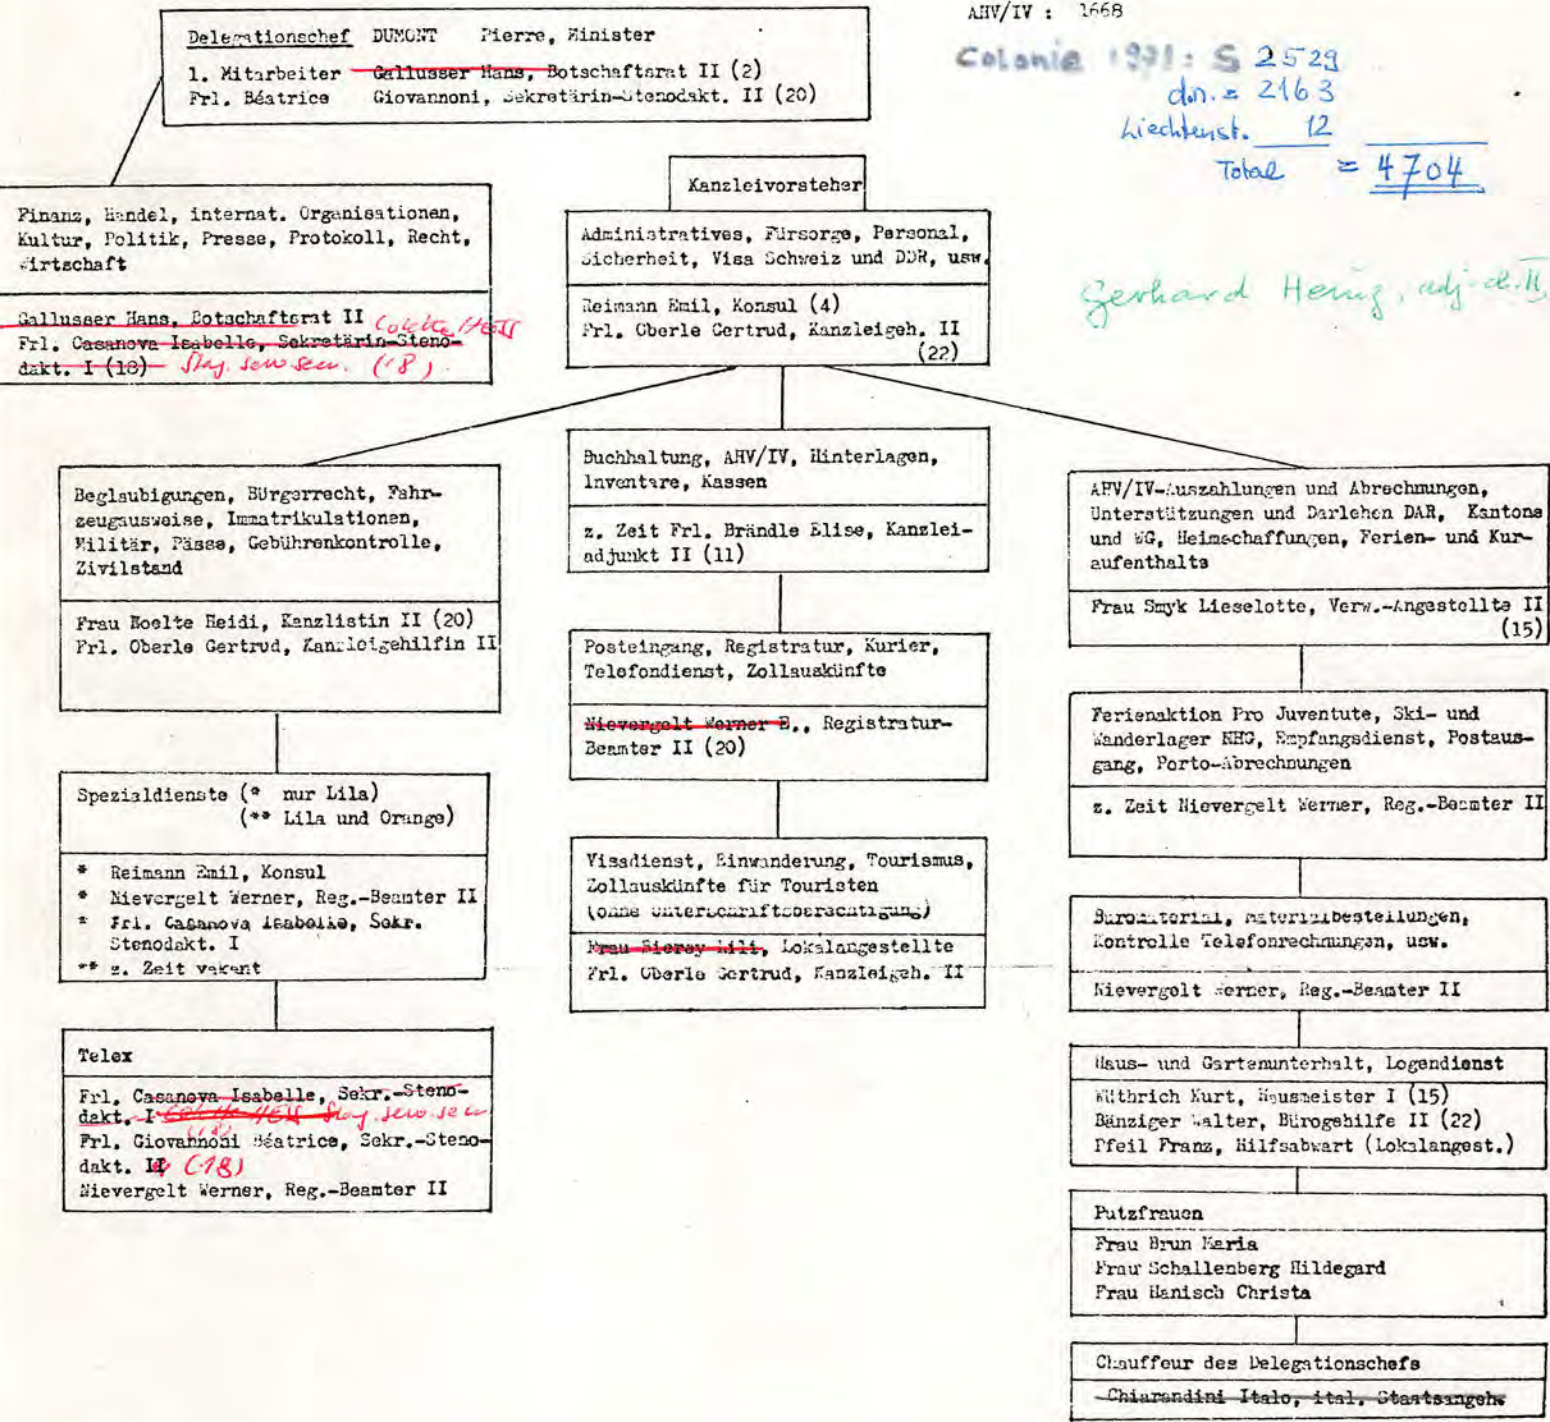 Delegationschef DUMONT Pierre, Minister
1. Mitarbeiter Gallusser Hans, Botschaftsrat II (2)
Frl. Béatrice Giovannoni, Sekretärin-Stenodakt. II (20)
AHV/IV : 1668
Colonie 1971: S 2529
d.n. = 2163
Liechtenst. 12
Total = 4704
Gerhard adj. II
Finanz, Handel, internat. Organisationen,
Kultur, Politik, Presse, Protokoll, Recht,
Wirtschaft
Gallusser Hans, Botschaftsrat II Colette HESS
Frl. Casanova Isabelle, Sekretärin-Steno-
dakt. I (18) Stag. (18)
Kanzleivorsteher
Administratives, Fürsorge, Personal,
Sicherheit, Visa Schweiz und DDR, usw.
Reimann Emil, Konsul (4)
Frl. Oberle Gertrud, Kanzleigeh. II
(22)
Beglaubigungen, Bürgerrecht, Fahr-
zeugausweise, Immatrikulationen,
Militär, Pässe, Gebührenkontrolle,
Zivilstand
Frau Heidi, Kanzlistin II (20)
Frl. Oberle Gertrud, Kanzleigehilfin II
Spezialdienste (* nur Lila)
(** Lila und Orange)
* Reimann Emil, Konsul
* Nievergelt Werner, Reg.-Beamter II
* Frl. Casanova Isabelle, Sekr.
Stenodakt. I
** z. Zeit vakant
Telex
Frl. Casanova Isabelle, Sekr.-Steno-
dakt. I Colette HESS Stag.
(18)
Frl. Giovannoni Béatrice, Sekr.-Steno-
dakt. II (18)
Nievergelt Werner, Reg.-Beamter II
Buchhaltung, AHV/IV, Hinterlagen,
Inventare, Kassen
z. Zeit Frl. Brändle Elise, Kanzlei-
adjunkt II (11)
Posteingang, Registratur, Kurier,
Telefondienst, Zollauskünfte
Nievergelt Werner E., Registratur-
Beamter II (20)
Visadienst, Einwanderung, Tourismus,
Zollauskünfte für Touristen
(ohne Unterschriftsberechtigung)
Frau Lili, Lokalangestellte
Frl. Oberle Gertrud, Kanzleigeh. II
AHV/IV-Auszahlungen und Abrechnungen,
Unterstützungen und Darlehen DAR, Kantone
und WG, Heimschaffungen, Ferien- und Kur-
aufenthalte
Frau Smyk Lieselotte, Verw.-Angestellte II
(15)
Ferienaktion Pro Juventute, Ski- und
Wanderlager NHG, Empfangsdienst, Postaus-
gang, Porto-Abrechnungen
z. Zeit Nievergelt Werner, Reg.-Beamter II
Büromaterial, Materialbestellungen,
Kontrolle Telefonrechnungen, usw.
Nievergelt Werner, Reg.-Beamter II
Haus- und Gartenunterhalt, Logendienst
Wüthrich Kurt, Hausmeister I (15)
Bänziger Walter, Bürogehilfe II (22)
Pfeil Franz, Hilfsabwart (Lokalangest.)
Putzfrauen
Frau Brun Maria
Frau Schallenberg Hildegard
Frau Hanisch Christa
Chauffeur des Delegationschefs
Chiarandini Italo, ital. Staatsangeh.